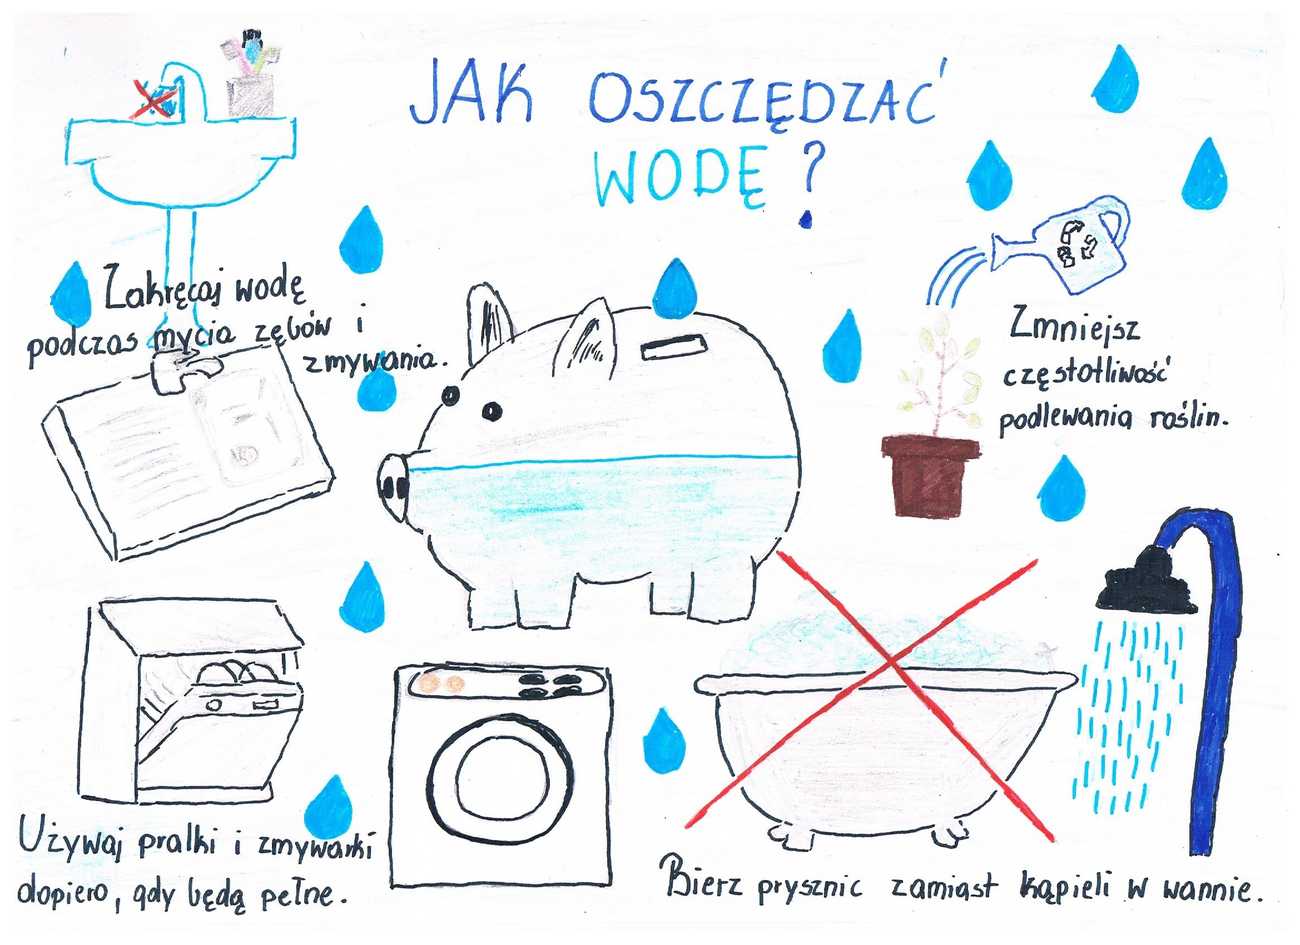 JAK OSZCZĘDZAĆ
WODĘ?
Zakręcaj wodę
podczas mycia zębów i
zmywania.
Zmniejsz
częstotliwość
podlewania roślin.
Używaj pralki i zmywarki
dopiero, gdy będą pełne.
Bierz prysznic zamiast kąpieli w wannie.